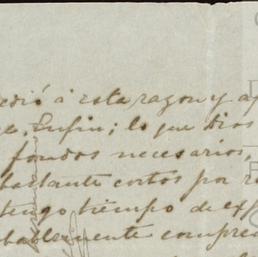 edió á esta razon y ap
Enfin; lo que Dios
fondos necesarios,
bastante cortos por r
tengo tiempo de exp
bablemente compre